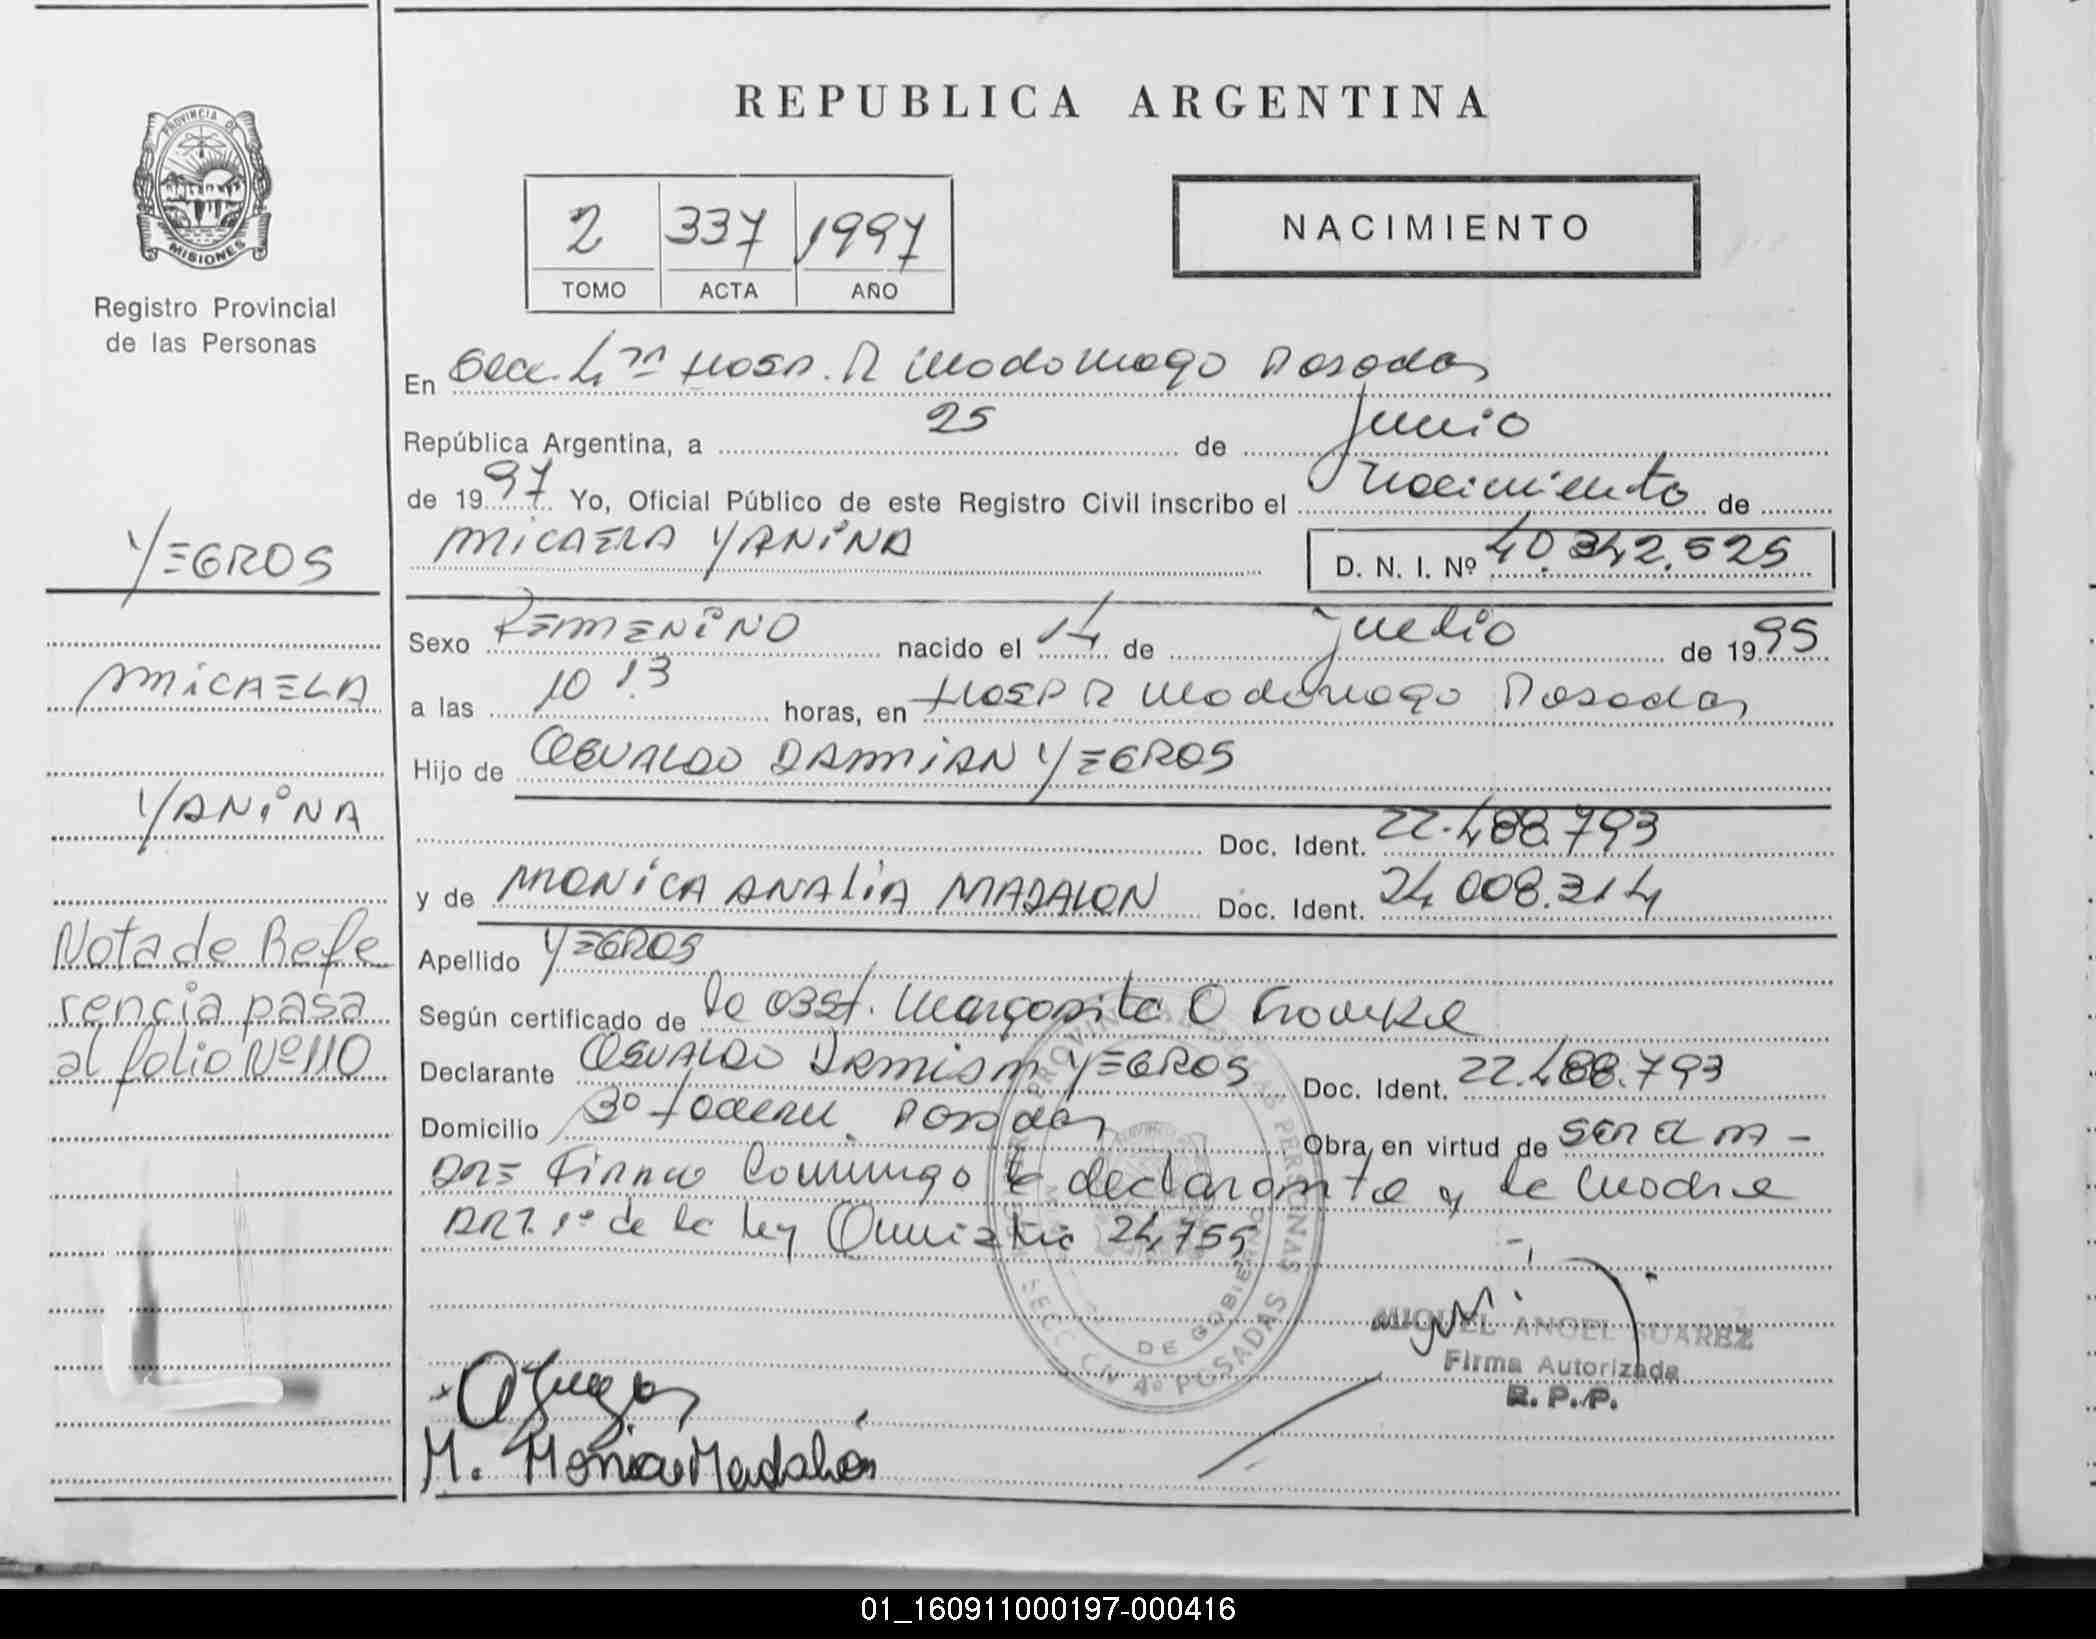 REPUBLICA ARGENTINA
PROVINCIA DE
MISIONES
Registro Provincial
de las Personas
2 337 1997
TOMO ACTA AÑO
NACIMIENTO
En Secc. 4ta Hosp. R Madariaga Posadas
República Argentina, a 25 de Junio
de 1997 Yo, Oficial Público de este Registro Civil inscribo el Nacimiento de
MICAELA YANINA D. N. I. Nº 40.342.525
YEGROS
MICAELA
YANINA
Nota de Refe
rencia pasa
al folio Nº 110
Sexo FEMENINO nacido el 14 de de 1995
a las 10 13 horas, en Hosp R Madariaga Posadas
Hijo de OSVALDO DAMIAN YEGROS
Doc. Ident. 22.488.793
y de MONICA ANALIA MADALON Doc. Ident. 24.008.314
Apellido YEGROS
Según certificado de la Obst. Margarita O
Declarante OSVALDO DAMIAN YEGROS Doc. Ident. 22.488.793
Domicilio Posadas Obra, en virtud de ser el pa-
dre Firma Conmigo el declarante y la Madre
ART. 1º de la ley Amnistia 24,755
SECC CIV 4º POSADAS
DE GOBIERNO
MIGUEL ANGEL SUAREZ
Firma Autorizada
R. P. P.
M. Monica Madalon
01_160911000197-000416